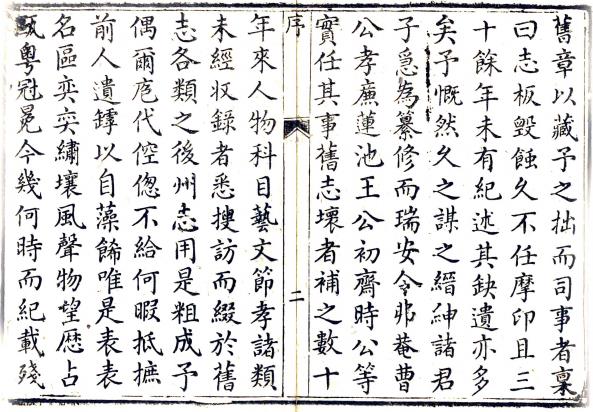 舊章以藏予之拙而司事者稟
曰志板毀蝕久不任摩印且三
十餘年未有紀述其缺遺亦多
矣予慨然久之謀之縉紳諸君
子急為纂修而瑞安令邶菴曹
公孝廉蓮池王公初齋時公等
實任其事舊志壞者補之數十
序
二
年來人物科目藝文節孝諸類
未經収錄者悉搜訪而綴於舊
志各類之後州志用是粗成予
偶爾庖代倥偬不給何暇抵摭
前人遺罅以自藻餙唯是表表
名區奕奕繡壤風聲物望歷占
甌粵冠冕今幾何時而紀載殘